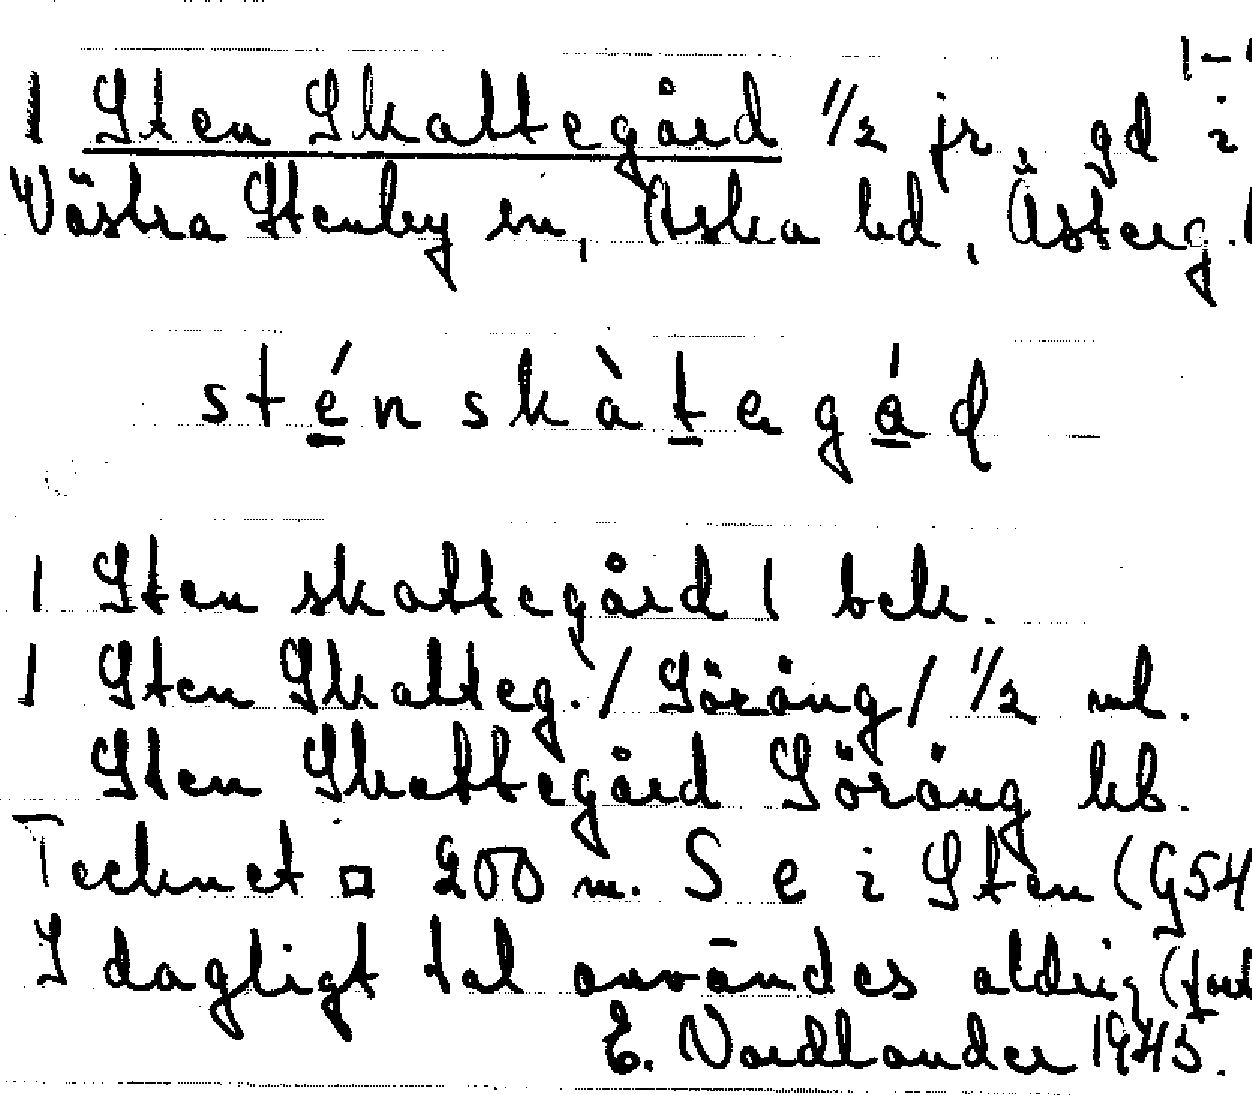 1 Sten Skattegård 1/2 jr, gd i
Västra Stenby sn, Aska hd, Österg.
sténskàtegád
1 Sten skattegård 1 bek.
1 Sten Skatteg. /Söräng/ 1/2 ml.
Sten Skattegård Söräng kb.
Tecknet □ 200 m. S e i Sten (G54
I dagligt tal användes aldrig (fort
E. Nordlander 1945.